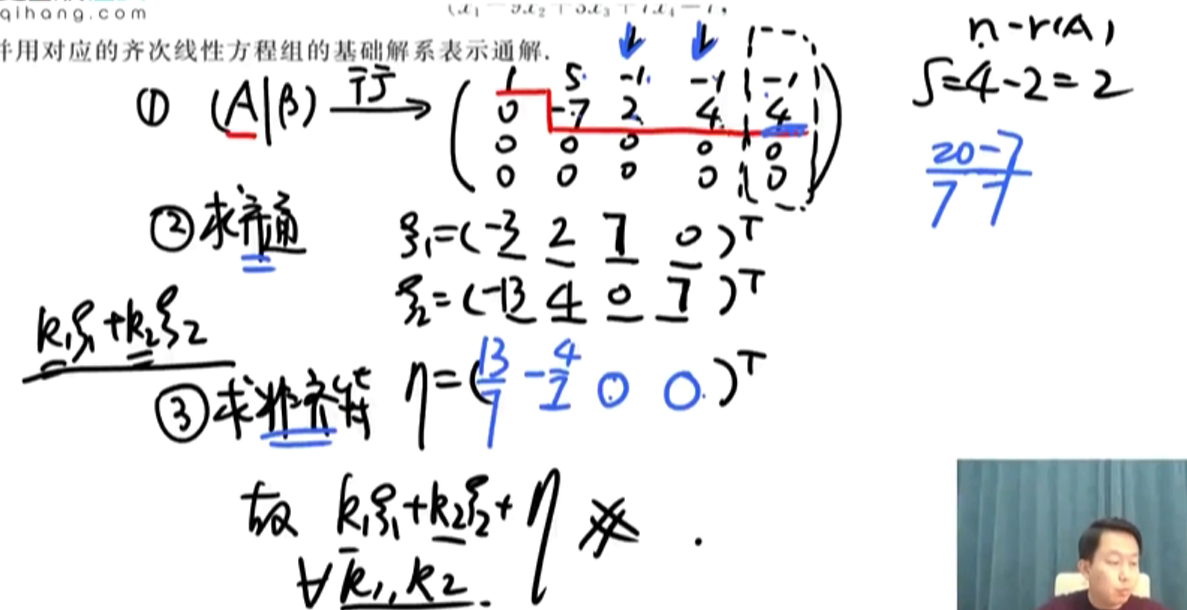 qihang.com
并用对应的齐次线性方程组的基础解系表示通解.
n-r(A)
S=4-2=2
① (A|β) 行→
1 5 -1 -1 -1
0 -7 2 4 4
0 0 0 0 0
0 0 0 0 0
20-7
7 7
②求齐通
ξ₁=(-3 2 7 0)ᵀ
ξ₂=(-13 4 0 7)ᵀ
k₁ξ₁+k₂ξ₂
③求非齐特 η=(13/7 -4/7 0 0)ᵀ
故 k₁ξ₁+k₂ξ₂+η
∀k₁,k₂.